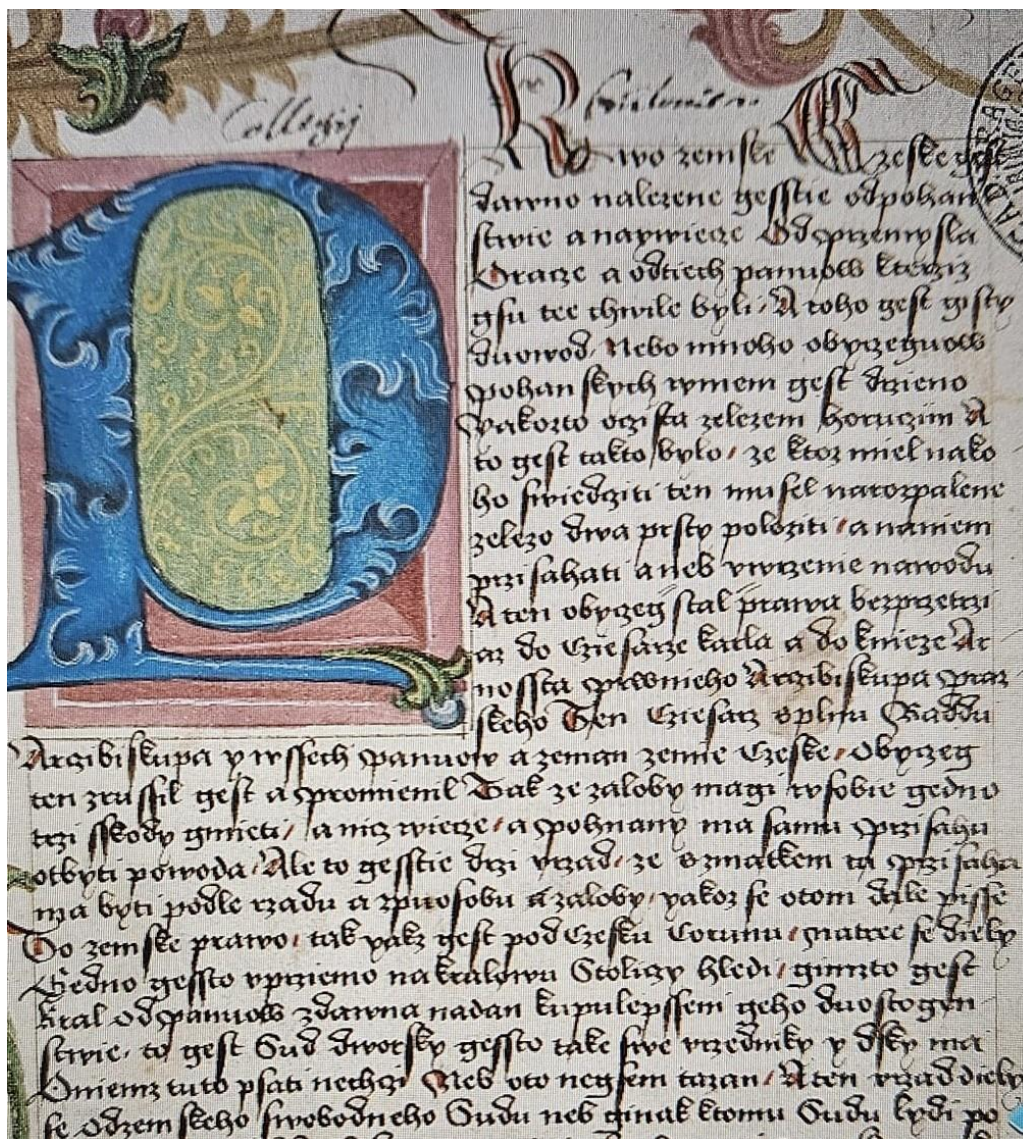 Collegij
P Rawo zemske Czeske gest
dawno nalezene gesstie odpohan
stwie a naywieze Od przemysla
Oracze a odtiech panuow kterziz
gsu tee chwile byli, A toho gest gisty
duowod, Nebo mnoho obyczeguow
pohanskych wniem gest drzieno
yakozto oczista zelezem horuczim A
to gest takto bylo, ze ktoz miel nako
ho swiedziti ten musel narozpalene
zelezo dwa prsty poloziti, a naniem
przisahati aneb vwrzenie nawodu
A ten obyczeg stal prawa bezprzetrzi
az do Cziesarze karla a do knieze Ar
nossta prwnieho Arczibiskupa praz
skeho Ten Cziesarz splnu Raddu
Arczibiskupa y wssech panuow a zeman zemie Czeske, obyczeg
ten zrussil gest a promienil Tak ze zaloby magi wsobie gedno
trzi sskody gmieti, a nic wieze, a pohnany ma samu przisahu
otbyti powoda, Ale to gesstie drzi vrzad, ze szmatkem ta przisaha
ma byti podle rzadu a zpuosobu a zaloby, yakoz se otom dale pisse
To zemske prawo, tak yakz gest pod Czesku Corunu, gnatree se diely
Gedno gessto vprziemo na kralowu Stoliczy hledi, gimzto gest
kral od panuow zdawna nadan kupulepssem geho duostogen
stwie, to gest Sud dworsky gessto take swe vrzedniky y dsky ma
Oniemz tuto psati nechczi Neb oto negsem tazan, A ten vrzad diely
se odzemskeho swobodneho Sudu neb ginak ktomu Sudu lydi po